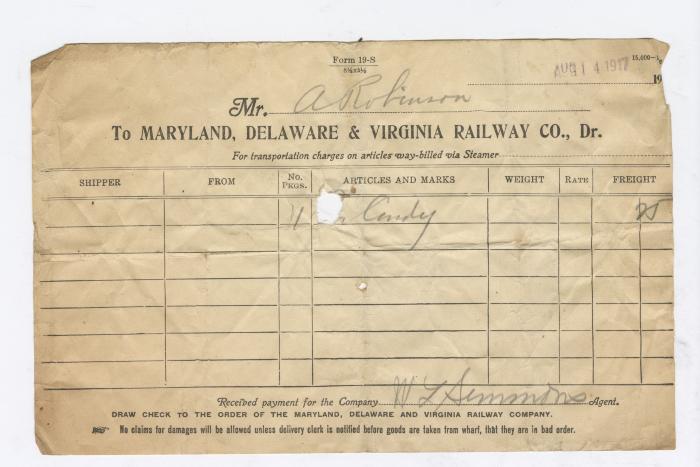 Form 19-S
8½x5½
15,000-
AUG 14 1917
19
Mr. A Robinson
To MARYLAND, DELAWARE & VIRGINIA RAILWAY CO., Dr.
For transportation charges on articles way-billed via Steamer
SHIPPER FROM No. PKGS. ARTICLES AND MARKS WEIGHT RATE FREIGHT
Candy 25
Received payment for the Company W L Simmons Agent.
DRAW CHECK TO THE ORDER OF THE MARYLAND, DELAWARE AND VIRGINIA RAILWAY COMPANY.
No claims for damages will be allowed unless delivery clerk is notified before goods are taken from wharf, that they are in bad order.